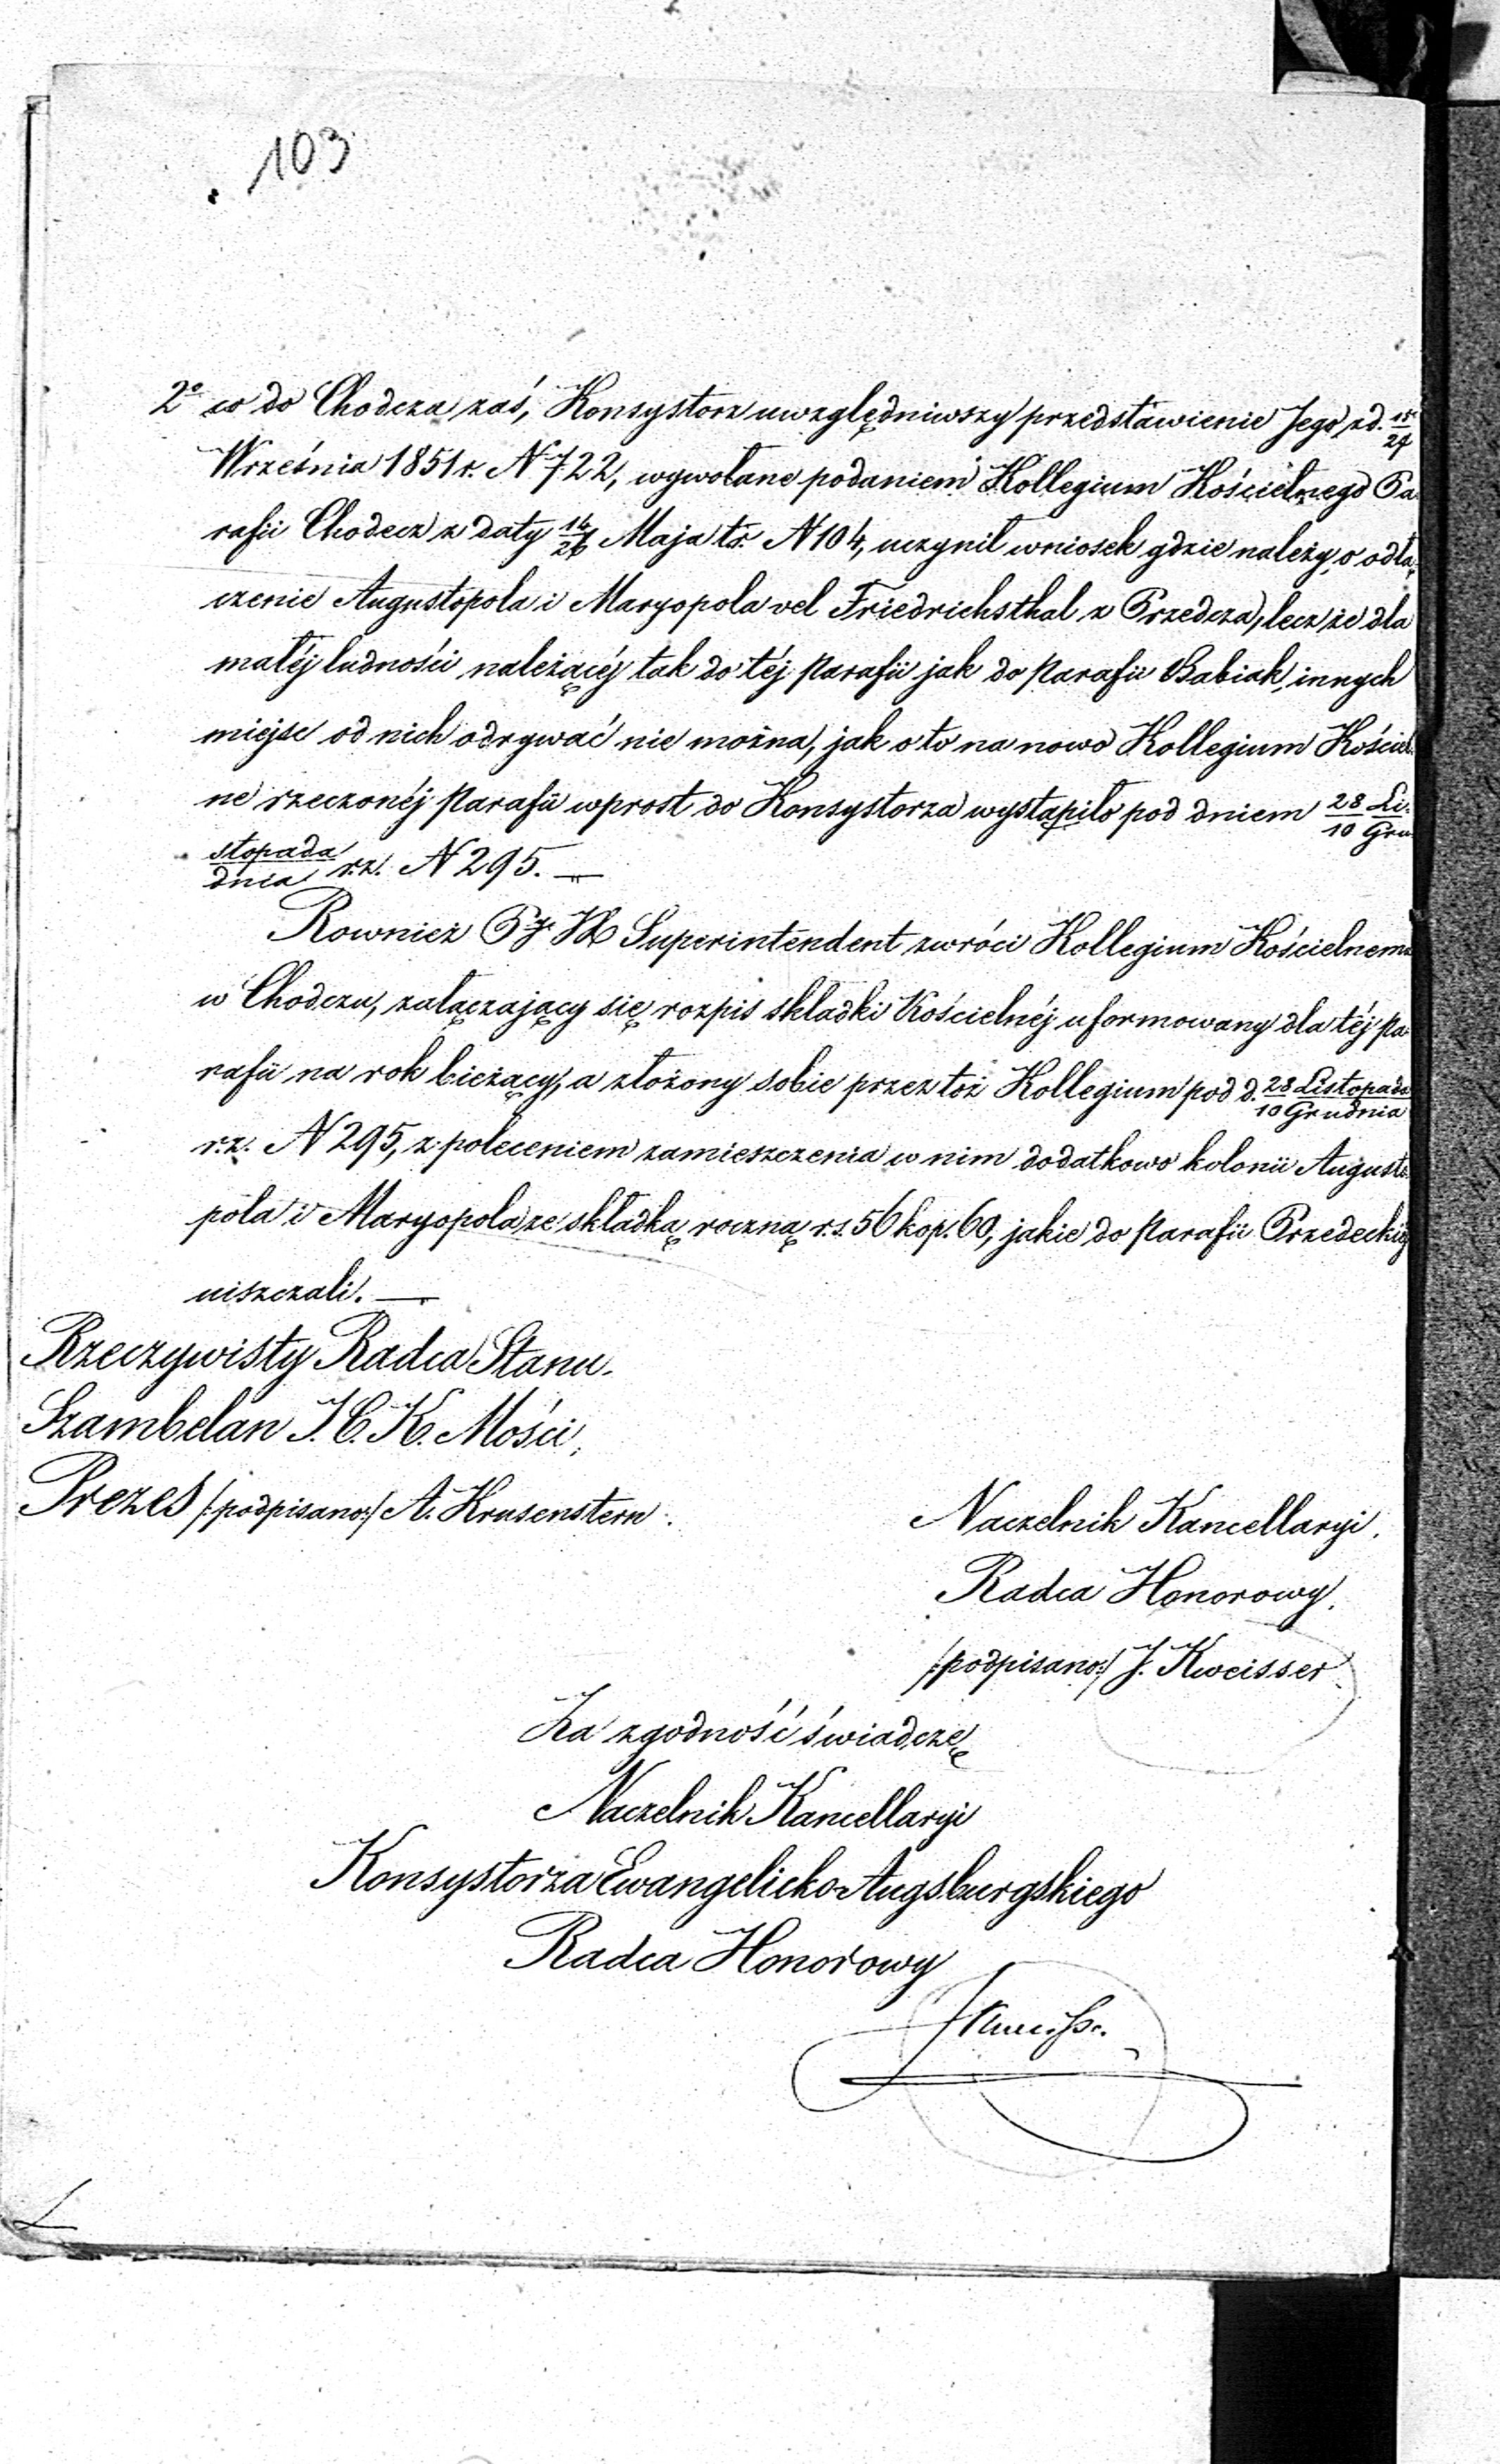 103
2° co do Chodcza zaś, Konsystorz uwzględniwszy przedstawienie Jego z d. 15/27
Września 1851 r. N 722, wywołane podaniem Kollegium Kościelnego Pa
rafii Chodecz z daty 14/26 Maja t.r. N 104, uczynił wniosek gdzie należy, o odłą
czenie Augustopola i Maryopola vel Friedrichsthal z Przedcza, lecz że dla
małéj ludności należącéj tak do téj Parafii jak do Parafii Babiak, innych
miejsc od nich odrywać nie można, jak o to na nowo Kollegium Kościel
ne rzeczonéj Parafii wprost do Konsystorza wystąpiło pod dniem 28 Li-/10 Gru
stopada/dnia r.z. N 295. —
Rownież Superintendent zwróci Kollegium Kościelnemu
w Chodczu, załączający się rozpis składki Kościelnéj uformowany dla téj Pa
rafii na rok bieżący, a złożony sobie przez toż Kollegium pod d. 28 Listopada/10 Grudnia
r.z. N 295, z poleceniem zamieszczenia w nim dodatkowo kolonii Augusto
pola i Maryopola ze składką roczną r.s. 56 kop. 60, jakie do Parafii Przedeckiéj
uiszczali. —
Rzeczywisty Radca Stanu.
Szambelan J. C. K. Mości,
Prezes /:podpisano:/ A. Krusenstern.
Naczelnik Kancellaryi.
Radca Honorowy.
/:podpisano:/ J. Kweisser
Za zgodność świadczę
Naczelnik Kancellaryi
Konsystorza Ewangelicko-Augsburgskiego
Radca Honorowy